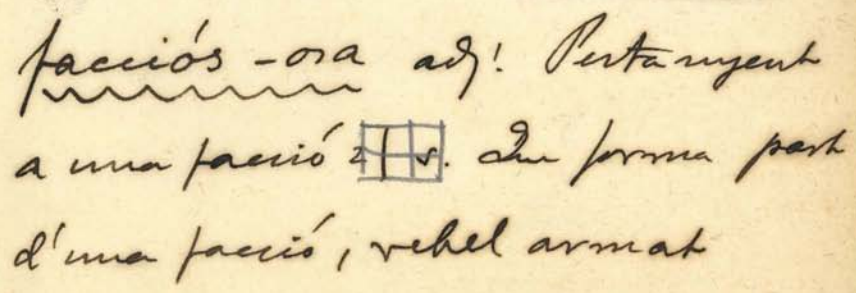 facciós -osa adj! Pertanyent
a una facció 2 | s. Qui forma part
d'una facció, rebel armat